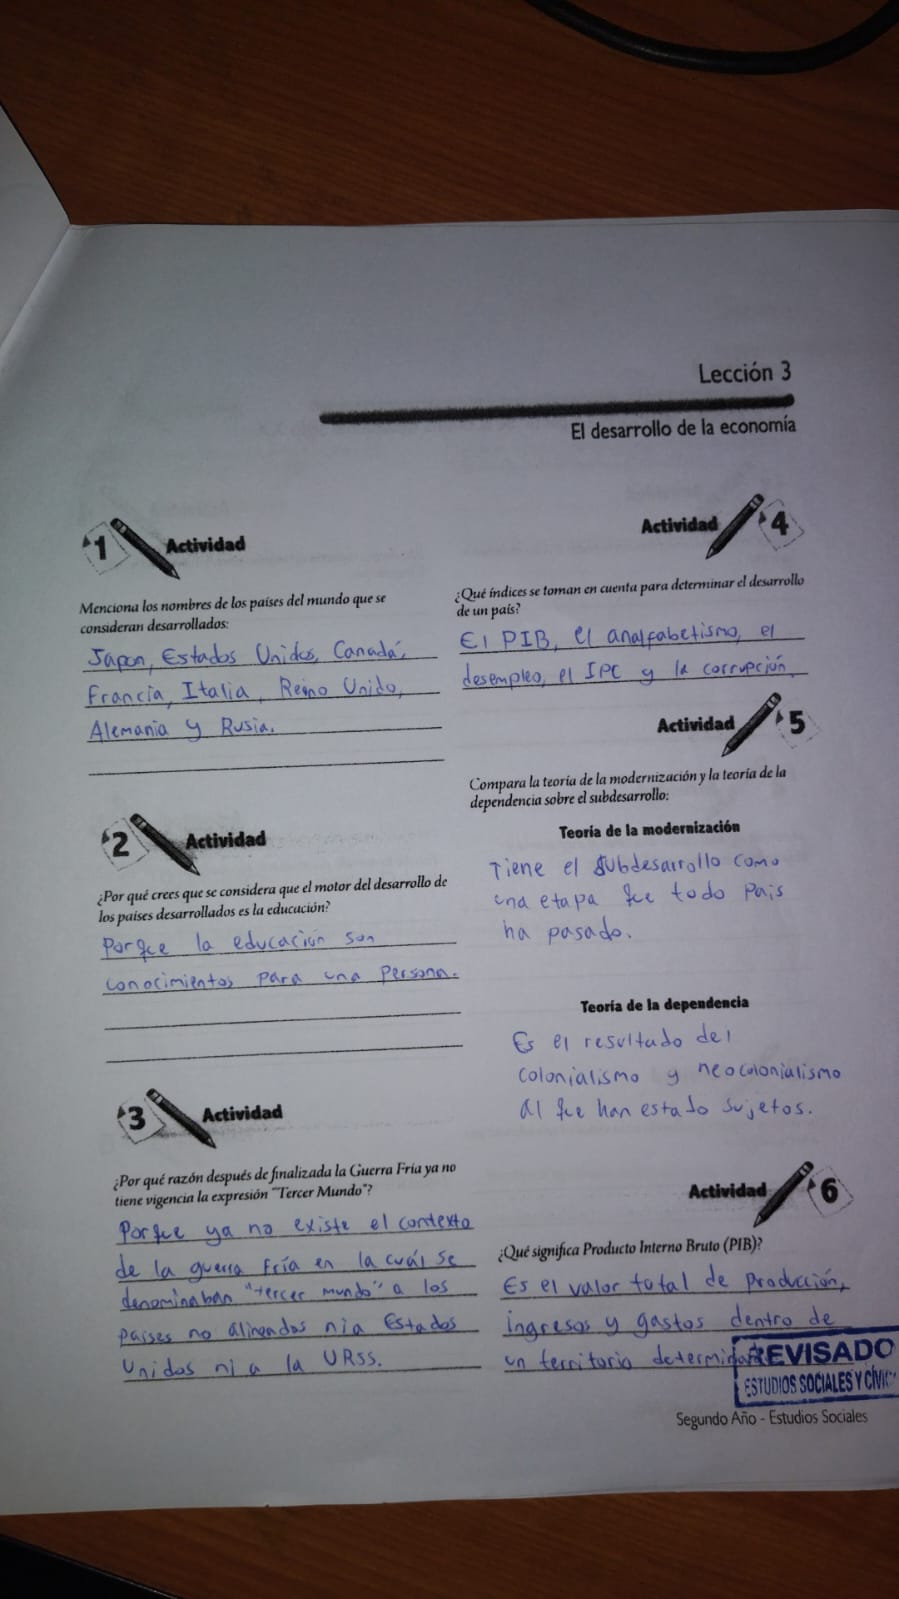 Lección 3
El desarrollo de la economía
1 Actividad
Menciona los nombres de los países del mundo que se
consideran desarrollados:
Japon, Estados Unidos, Canadá,
Francia, Italia, Reino Unido,
Alemania y Rusia.
2 Actividad
¿Por qué crees que se considera que el motor del desarrollo de
los países desarrollados es la educación?
Porque la educación son
conocimientos para una persona.
3 Actividad
¿Por qué razón después de finalizada la Guerra Fría ya no
tiene vigencia la expresión "Tercer Mundo"?
Porque ya no existe el contexto
de la guerra fría en la cuál se
denominaban "tercer mundo" a los
paises no alineados ni a Estados
Unidos ni a la URSS.
Actividad 4
¿Qué índices se toman en cuenta para determinar el desarrollo
de un país?
El PIB, el analfabetismo, el
desempleo, el IPC y la corrupción.
Actividad 5
Compara la teoría de la modernización y la teoría de la
dependencia sobre el subdesarrollo:
Teoría de la modernización
Tiene el subdesarrollo como
una etapa que todo pais
ha pasado.
Teoría de la dependencia
Es el resultado del
colonialismo y neocolonialismo
al que han estado sujetos.
Actividad 6
¿Qué significa Producto Interno Bruto (PIB)?
Es el valor total de producción,
ingresos y gastos dentro de
un territorio
REVISADO
ESTUDIOS SOCIALES Y
Segundo Año - Estudios Sociales